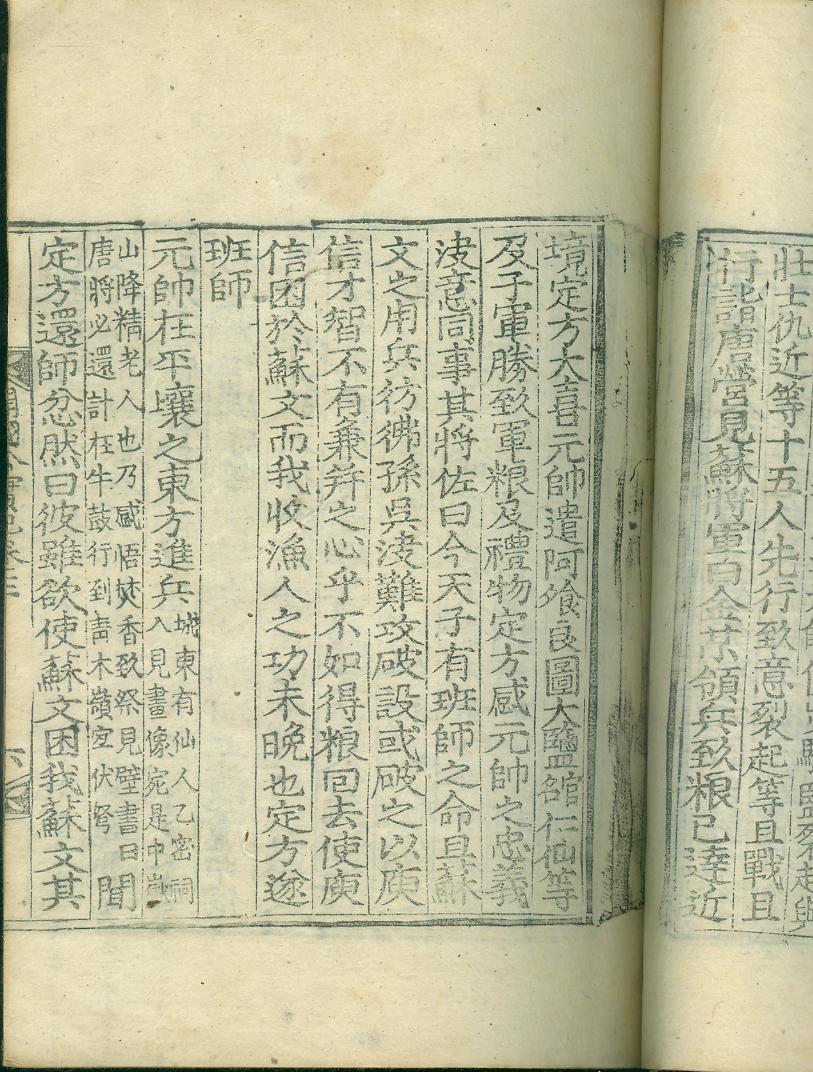 壯士仇近等十五人先行致意裂起等且戰且
行詣唐營見蘇將軍白金 領兵致粮已達近
境定方大喜元帥遣阿飱良圖大監 仁仙等
及子軍勝致軍粮及禮物定方感元帥之忠義
決意同事其將佐曰今天子有班師之命且蘇
文之用兵彷彿孫吳決難攻破設或破之以庾
信才智不有兼并之心乎不如得粮回去使庾
信困於蘇文而我收漁人之功未晚也定方遂
班師
元帥在平壤之東方進兵
城東有仙人乙密祠
入見畫像宛是中嶽
山降精老人也乃感悟焚香致祭見壁書曰
唐將必還計在牛鼓行到靑木嶺宜伏弩
聞
定方還師忿然曰彼雖欲使蘇文困我蘇文其
六